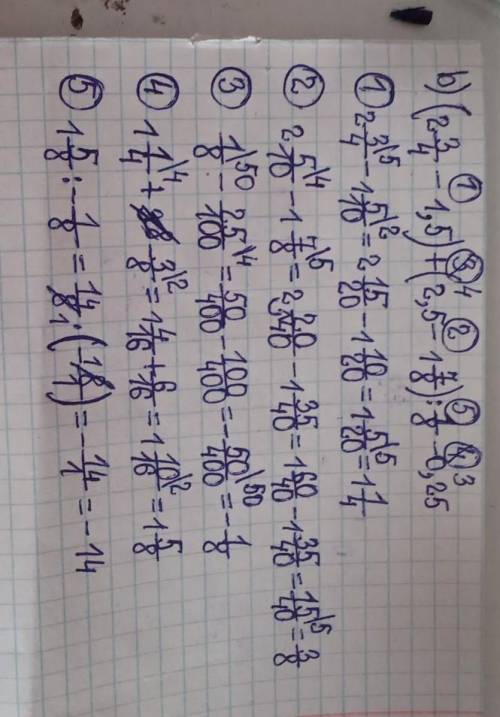 b) (2 3/4 - 1,5) + (2,5 - 1 7/8) : 1/8 - 0,25
① 2 3/4\5 - 1 5/10\2 = 2 15/20 - 1 10/20 = 1 5/20\5 = 1 1/4
② 2 5/10\4 - 1 7/8\5 = 2 20/40 - 1 35/40 = 1 60/40 - 1 35/40 = 15/40\5 = 3/8
③ 1/8\50 - 25/100\4 = 50/400 - 100/400 = - 50/400\50 = - 1/8
④ 1 1/4\4 + 3/8\2 = 1 4/16 + 6/16 = 1 10/16\2 = 1 5/8
⑤ 1 5/8 : - 1/8 = 14/8 : (- 18/1) = - 14/1 = -14